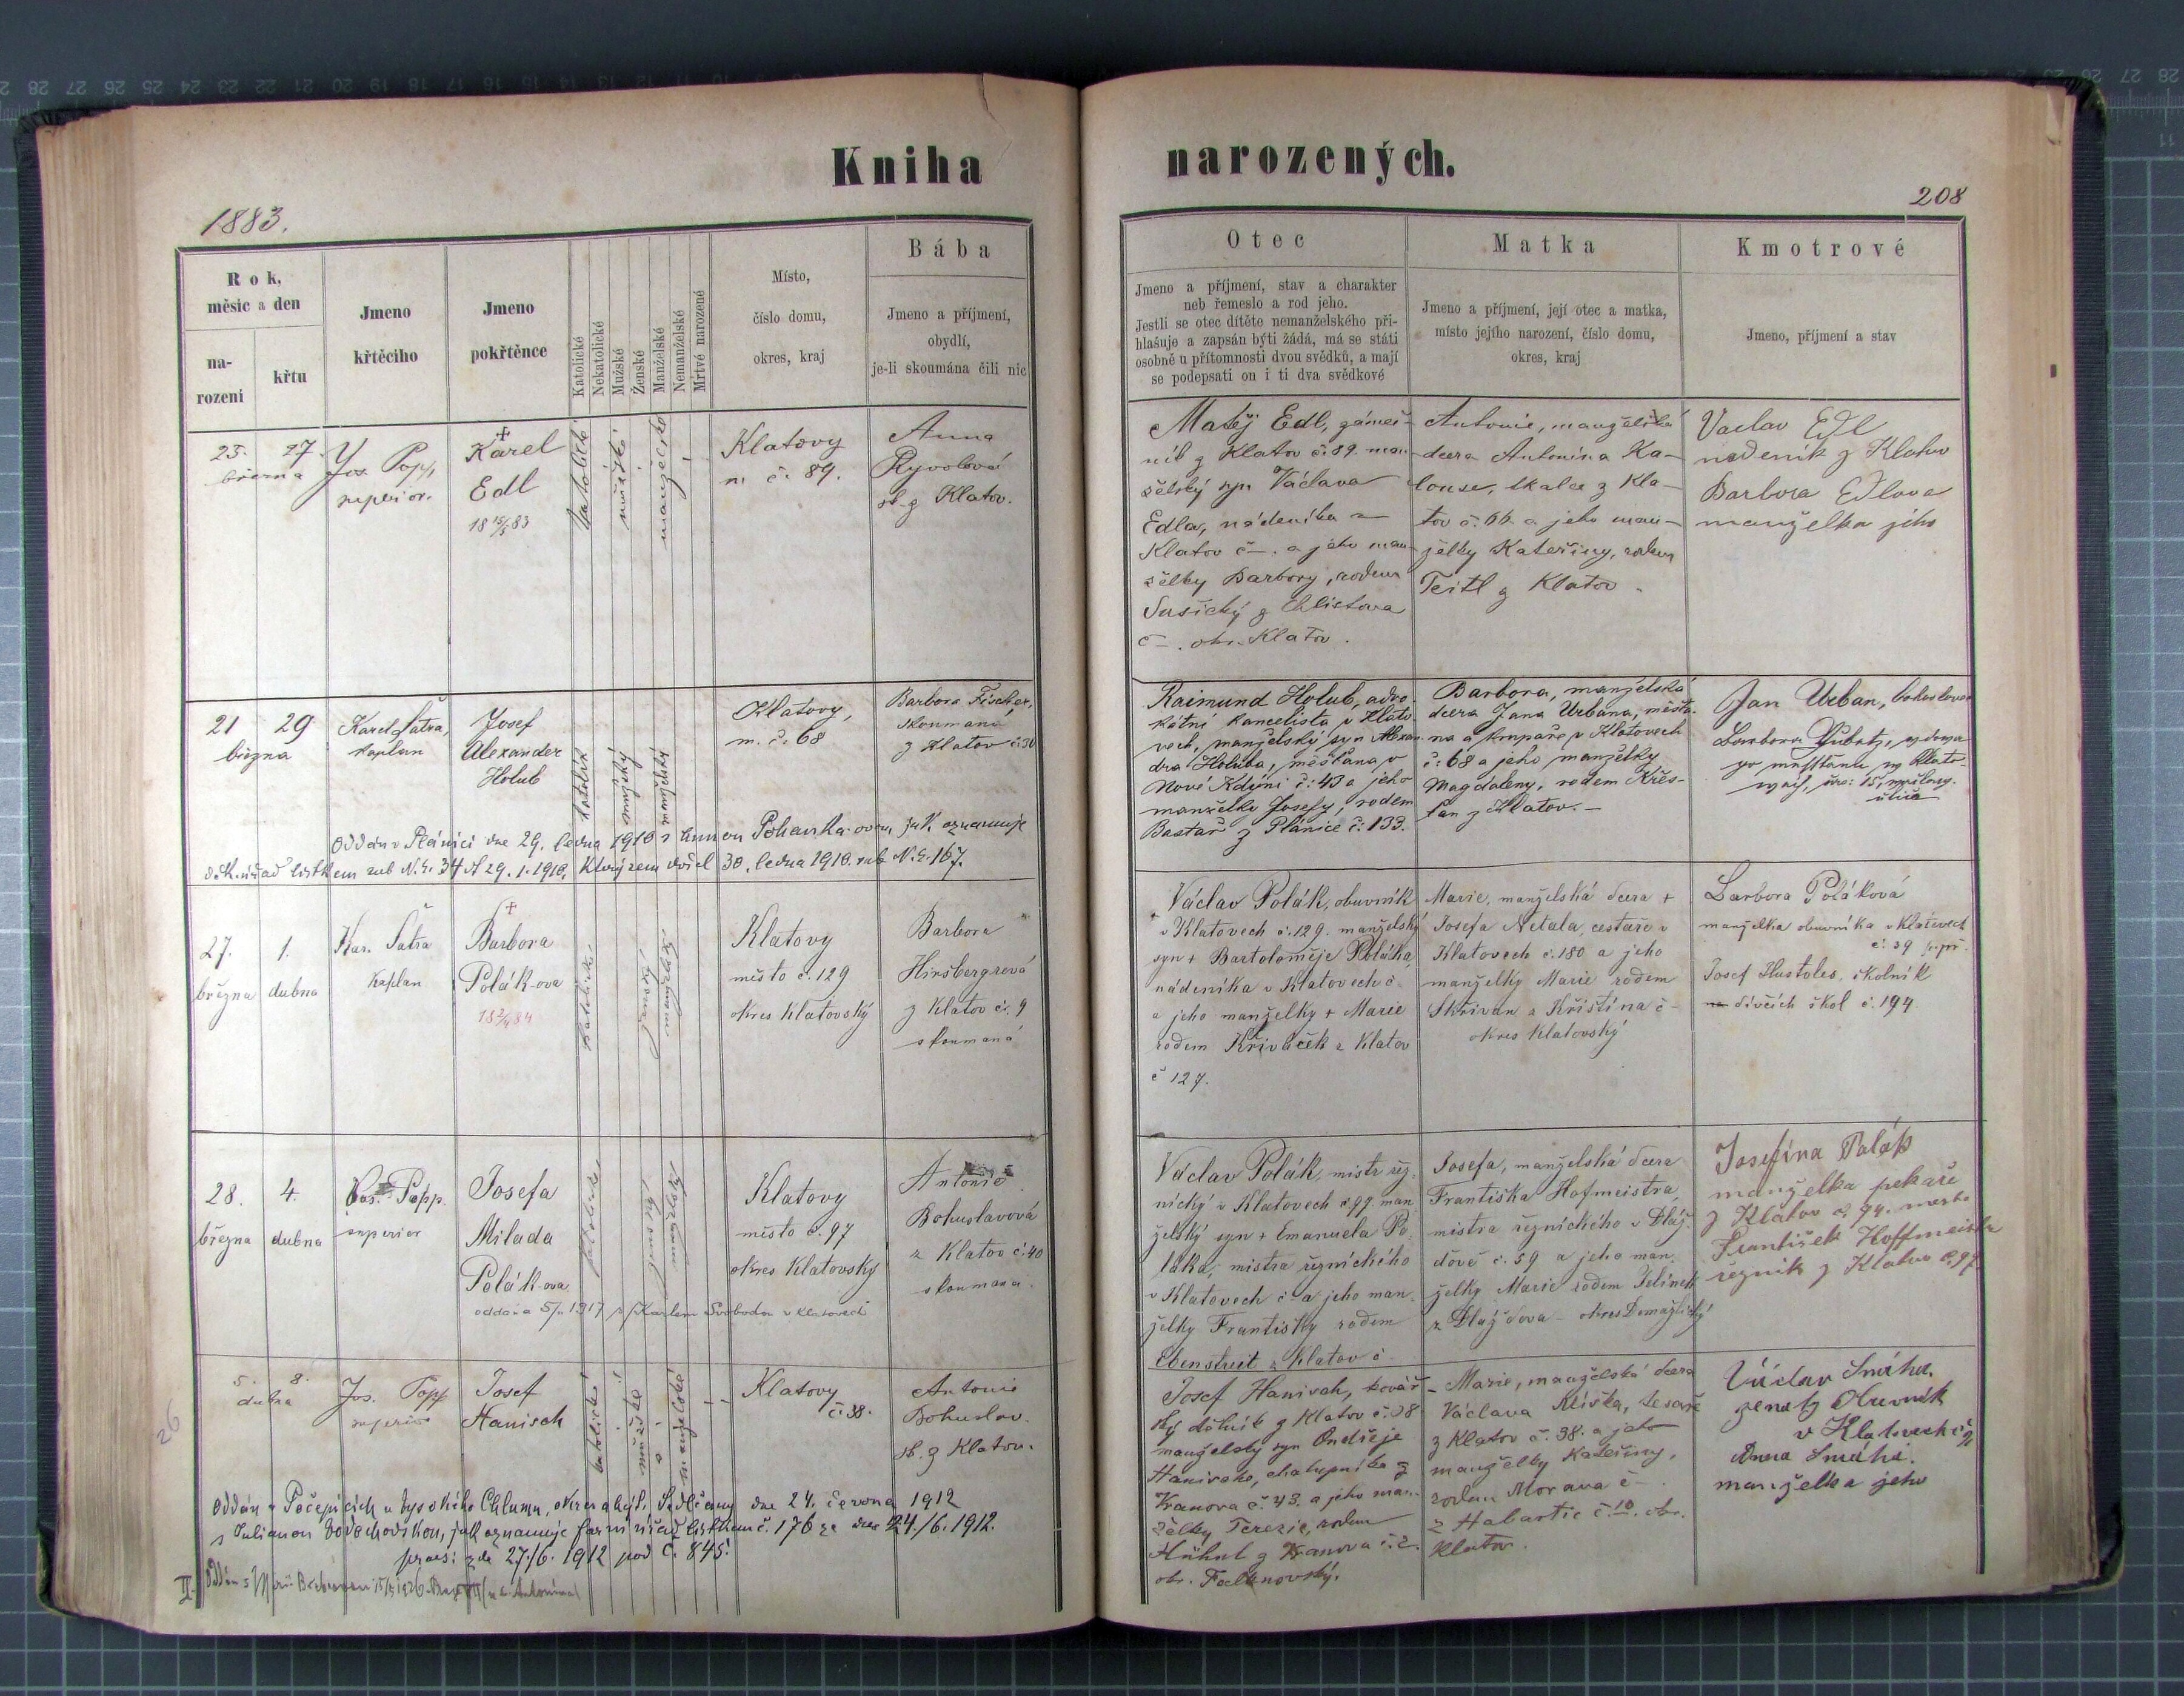 Kniha narozených.
1883.
208
Rok,
měsíc a den
na-
rození
křtu
Jmeno
křtěcího
Jmeno
pokřtěnce
Katolické
Nekatolické
Mužské
Ženské
Manželské
Nemanželské
Mrtvé narozené
Místo,
číslo domu,
okres, kraj
Bába
Jmeno a příjmení,
obydlí,
je-li skoumána čili nic
Otec
Jmeno a příjmení, stav a charakter
neb řemeslo a rod jeho.
Jestli se otec dítěte nemanželského při-
hlašuje a zapsán býti žádá, má se státi
osobně u přítomnosti dvou svědků, a mají
se podepsati on i ti dva svědkové
Matka
Jmeno a příjmení, její otec a matka,
místo jejího narození, číslo domu,
okres, kraj
Kmotrové
Jmeno, příjmení a stav
25. 27.
března
Jos. Popp,
superior.
Karel
Edl
18 15/5 83
katolické
mužské
manželské
Klatovy
m č. 89.
Anna
Ryvolová
zk. z Klatov.
Matěj Edl, zámeč-
ník z Klatov č. 89. man-
želský syn Václava
Edla, nádeníka z
Klatov č –. a jeho man-
želky Barbory, rodem
Sušický z Chlistova
č –. okr. Klatov.
Antonie, manželská
dcera Antonína Ka-
louse, tkalce z Kla-
tov č. 66. a jeho man-
želky Kateřiny, rodem
Teitl z Klatov.
Vaclav Edl
nadenik z Klatov
Barbora Edlova
manželka jeho
21 29
března
Karel Šatra,
kaplan
Josef
Alexander
Holub
katolík
mužský
manželský
Klatovy,
m. č. 68
Barbora Fischer,
skoumaná
z Klatov č. 30
Oddán v Plánici dne 29. ledna 1910 s Annou Pohanka-ovou, jak oznamuje
d. K. úřad listkem sub N. E. 34 dt 29. 1. 1910, který sem došel 30. ledna 1910. sub N. E. 167.
Raimund Holub, advo-
kátní kancelista v Klato-
vech, manželský syn Alexan-
dra Holuba, měšťana v
Nové Kdyni č: 43 a jeho
manželky Josefy, rodem
Bastař z Plánice č: 133.
Barbora, manželská
dcera Jana Urbana, měšťa-
na a krupaře v Klatovech
č: 68 a jeho manželky
Magdaleny, rodem Křes-
ťan z Klatov.–
Jan Urban, bohoslovec
Barbora
27. 1.
března dubna
Kar. Šatra
kaplan
Barbora
Polák-ova
katolické
ženský
manželské
Klatovy
město č. 129
okres Klatovský
Barbora
Hiršbergrová
z Klatov č. 9
skoumaná
Václav Polák, obuvník
v Klatovech č. 129. manželský
syn + Bartoloměje Poláka,
nádeníka v Klatovech č
a jeho manželky + Marie
rodem Křiváček z Klatov
č 127.
Marie, manželská dcera +
Josefa Netala, cestaře v
Klatovech č. 180 a jeho
manželky Marie rodem
Skřivan z Křištína č –
okres Klatovský
Barbora Poláková
manželka obuvníka v Klatovech
č. 39
Josef Hustoles, školník
dívčích škol č. 194.
28. 4.
března dubna
Jos. Popp.
superior
Josefa
Milada
Polák-ova
katolické
ženský
manželské
Klatovy
město č. 97
okres Klatovský
Antonie
Bohuslavová
z Klatov č. 40
skoumaná.
oddána 5/ 1917 s Karlem Svoboda v Klatovech
Václav Polák, mistr řez-
nický v Klatovech č 97. man-
želský syn + Emanuela Po-
láka, mistra řeznického
v Klatovech č – a jeho man-
želky Františky rodem
Ebenstreit z Klatov č –
Josefa, manželská dcera
Františka Hofmeistra,
mistra řeznického v Dláž-
dově č. 59 a jeho man-
želky Marie rodem Jelínek
z Dláždova – okres Domažlický
Josefina Polák
manželka pekaře
z Klatov č. 94. město
František Hoffmeister
řezník z Klatov č. 97
5. 8.
dubna
Jos. Popp
superior
Josef
Hanisch
katolické
mužské
manželské
Klatovy
č. 38.
Antonie
Bohuslav.
zk. z Klatov.
26
Oddán v Počepicích u Vysokého Chlumu, okres hejt. Sedlčany dne 24. června 1912
s Julianou Vodochodskou, jak oznamuje farní úřad listkem č. 176 ze dne 24./6. 1912.
praes: zde 27./6. 1912 pod č. 845.
II. Oddán s Marií
Josef Hanisch, kovář-
ský dělník z Klatov č. 38
manželský syn Ondřeje
Hanische, chalupníka z
Kranova č. 43. a jeho man-
želky Terezie, rodem
Hühnl z Kranova č. 2.
okr. Falknovský.
Marie, manželská dcera
Václava Kliška, tesaře
z Klatov č. 38. a jeho
manželky Kateřiny,
rodem Morava č –
z Habartic č. 10. okr.
Klatov.
Václav Smíha.
ženatý Obuvník
v Klatovech č
Anna Smíha.
manželka jeho